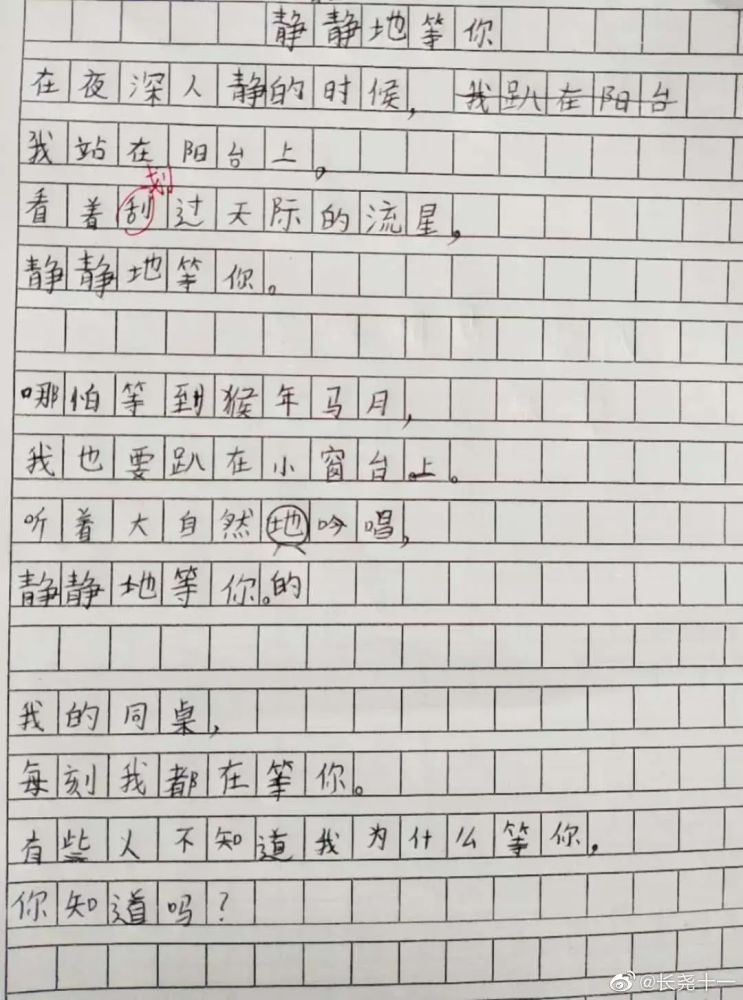 静静地等你
在夜深人静的时候，我趴在阳台
我站在阳台上。
划
看着刮过天际的流星，
静静地等你。
哪怕等到猴年马月，
我也要趴在小窗台上。
听着大自然地吟唱，
静静地等你。的
我的同桌，
每刻我都在等你。
有些人不知道我为什么等你，
你知道吗？
@长尧十一